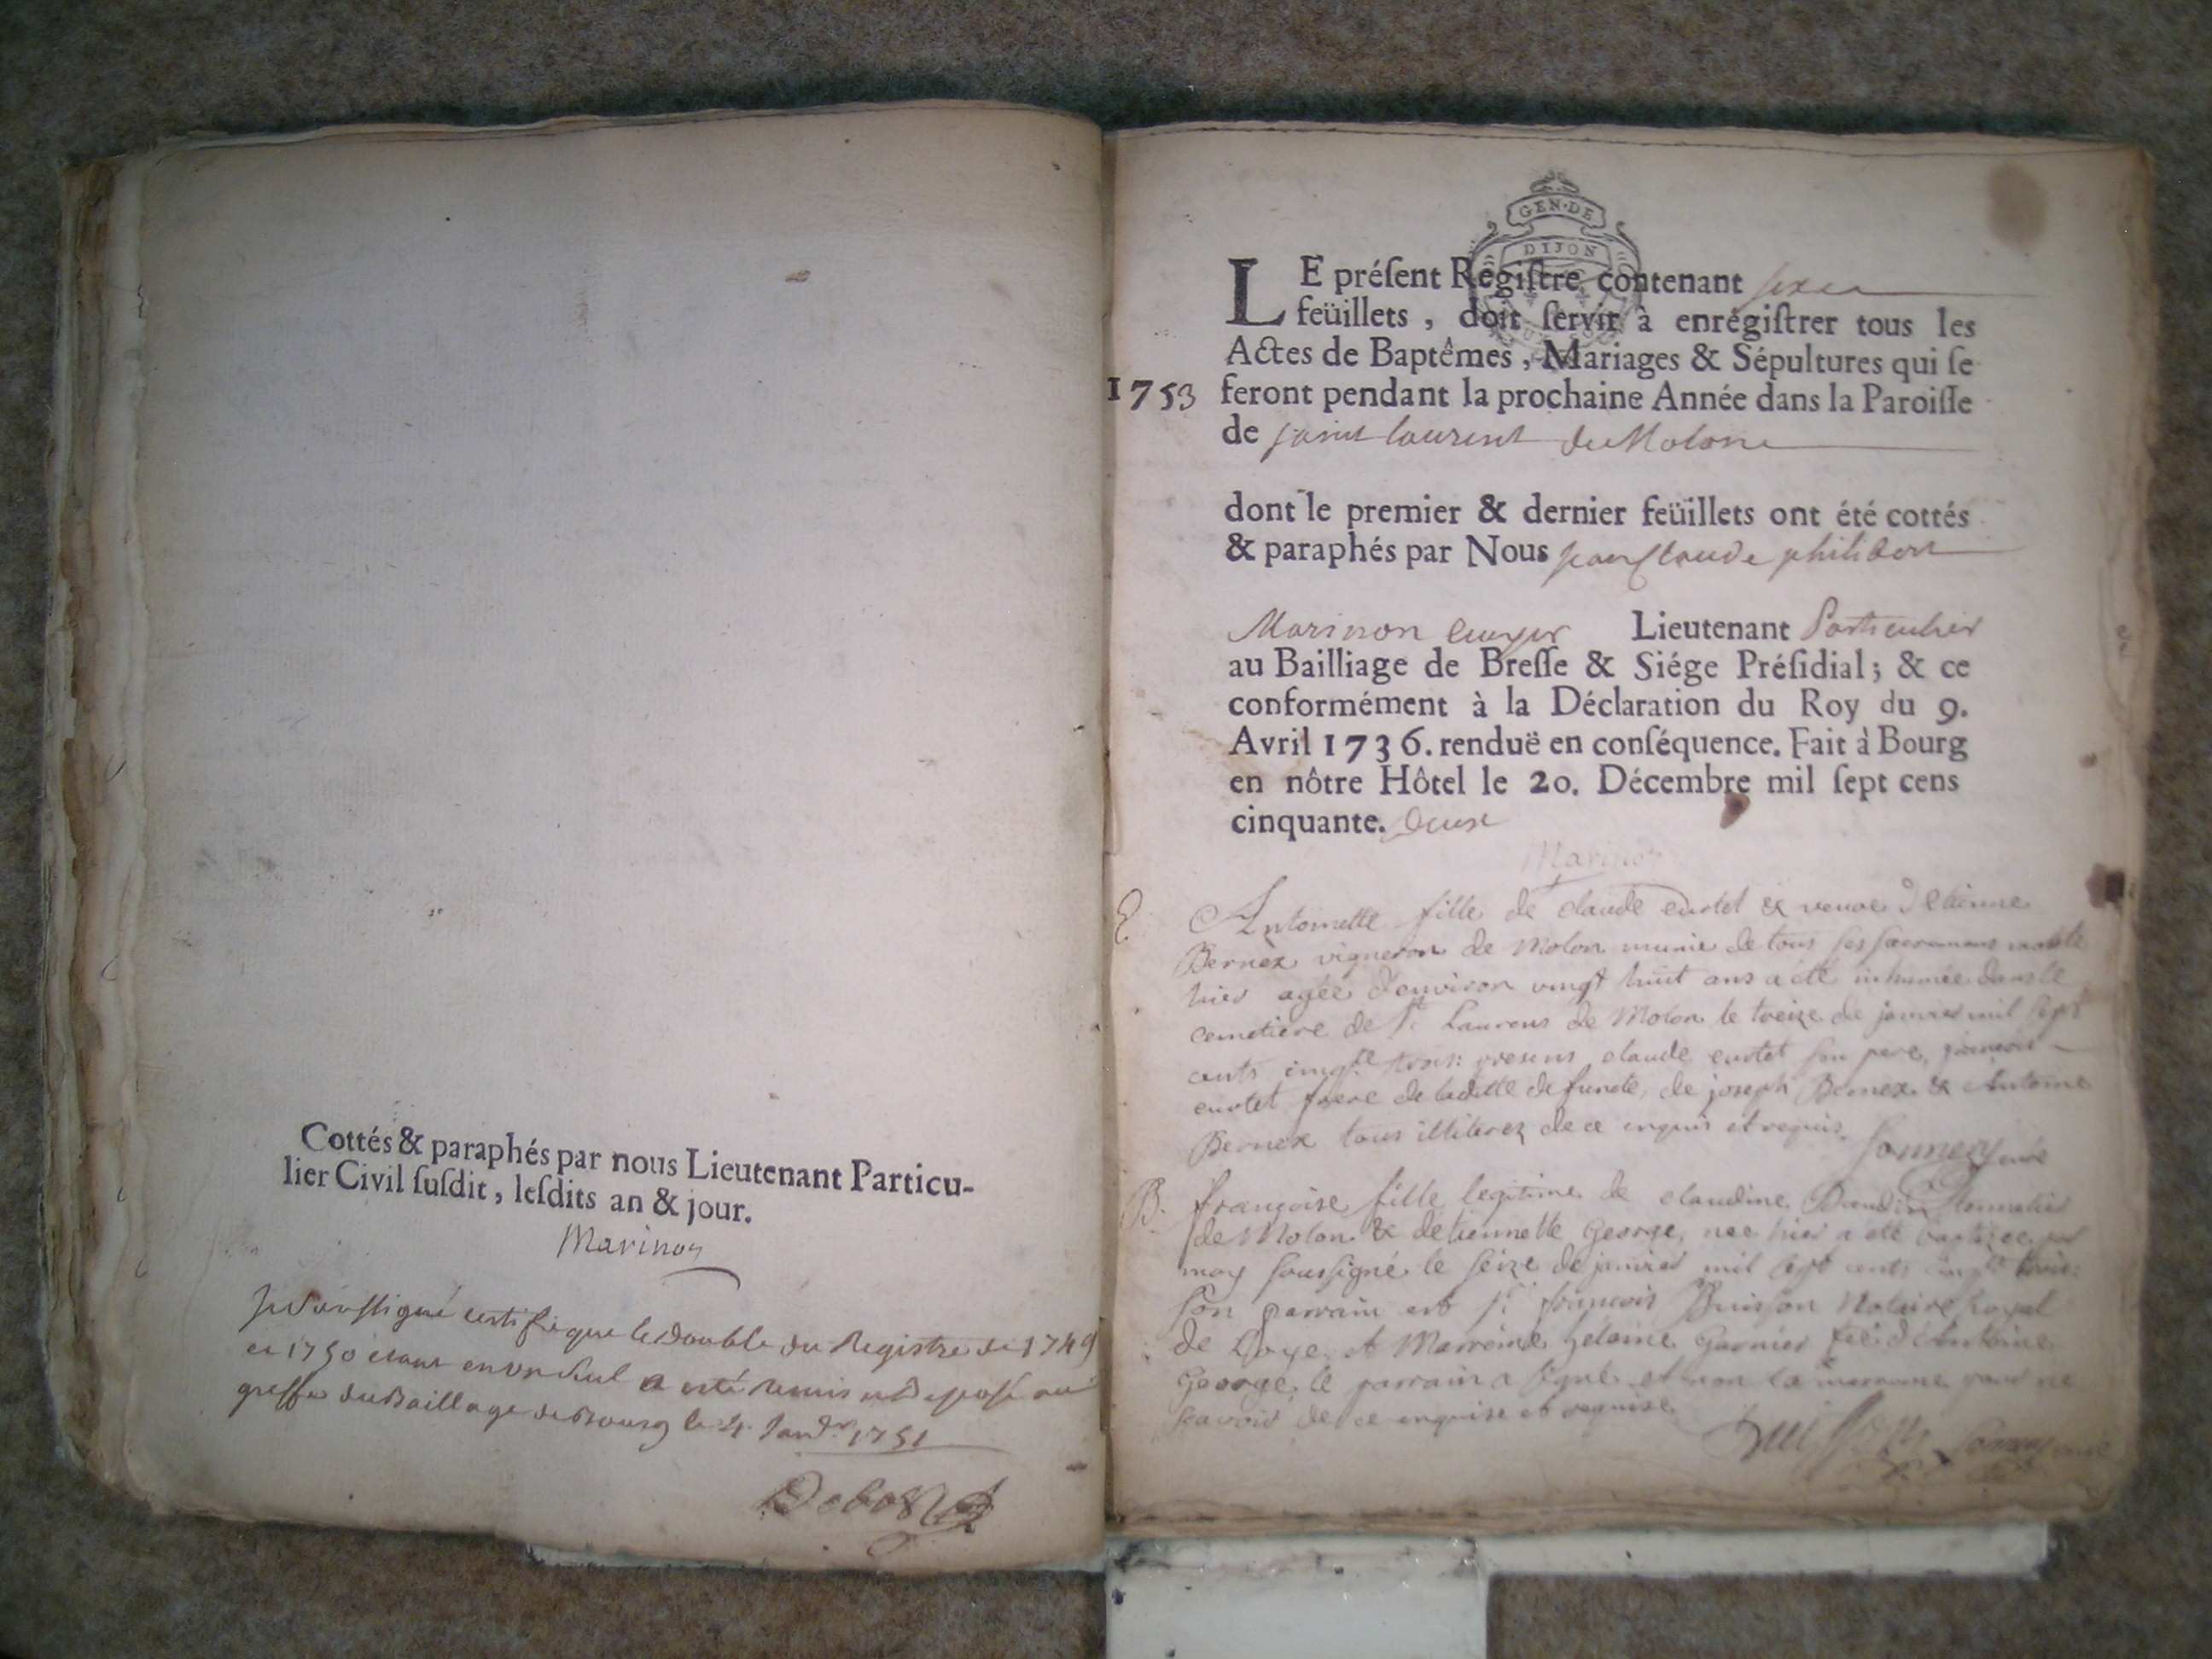 Cottés & paraphés par nous Lieutenant Particu-
lier Civil ſuſdit, leſdits an & jour.
Marinon
Je Soussigné certifie que le Double du Registre de 1749
et 1750 étant en un seul a esté remis et Déposé au
greffe du Baillage de Bourg le 4 1751
GEN·DE
DIJON
LE préſent Régiſtre contenant
feüillets, doit ſervir à enrégiſtrer tous les
Actes de Baptêmes, Mariages & Sépultures qui ſe
1753 feront pendant la prochaine Année dans la Paroiſſe
de saint laurent de Molon
dont le premier & dernier feüillets ont été cottés
& paraphés par Nous Jean Claude philibert
Marinon Ecuyer Lieutenant Particulier
au Bailliage de Breſſe & Siége Préſidial; & ce
conformément à la Déclaration du Roy du 9.
Avril 1736. renduë en conſéquence. Fait à Bourg
en nôtre Hôtel le 20. Décembre mil ſept cens
cinquante. deux
Marinon
Antoinette fille de claude curtet & veuve d'etienne
Bernex vigneron de Molon munie de tous ses sacremens morte
hier agée d'environ vingt huit ans a été inhumée dans le
cemetiere de St. Laurens de Molon le treize de janvier mil sept
cents cinqte trois: presens claude curtet son pere, francois
curtet frere de laditte defuncte, de joseph Bernex & Antoine
Bernex tous illiterez de ce enquis et requis.
B. françoise fille legitime de claudine
de Molon & d'etiennette George, née hier a été baptizée par
moy soussigné le seize de janvier mil sept cents cinqte trois:
son parrain est Sr. françois Buisson Notaire Royal
de Loye et Marreine helaine Garnier d'Antoine
George, le parrain a signé et non la marraine pour ne
scavoir de ce enquise et requise.
Buisson